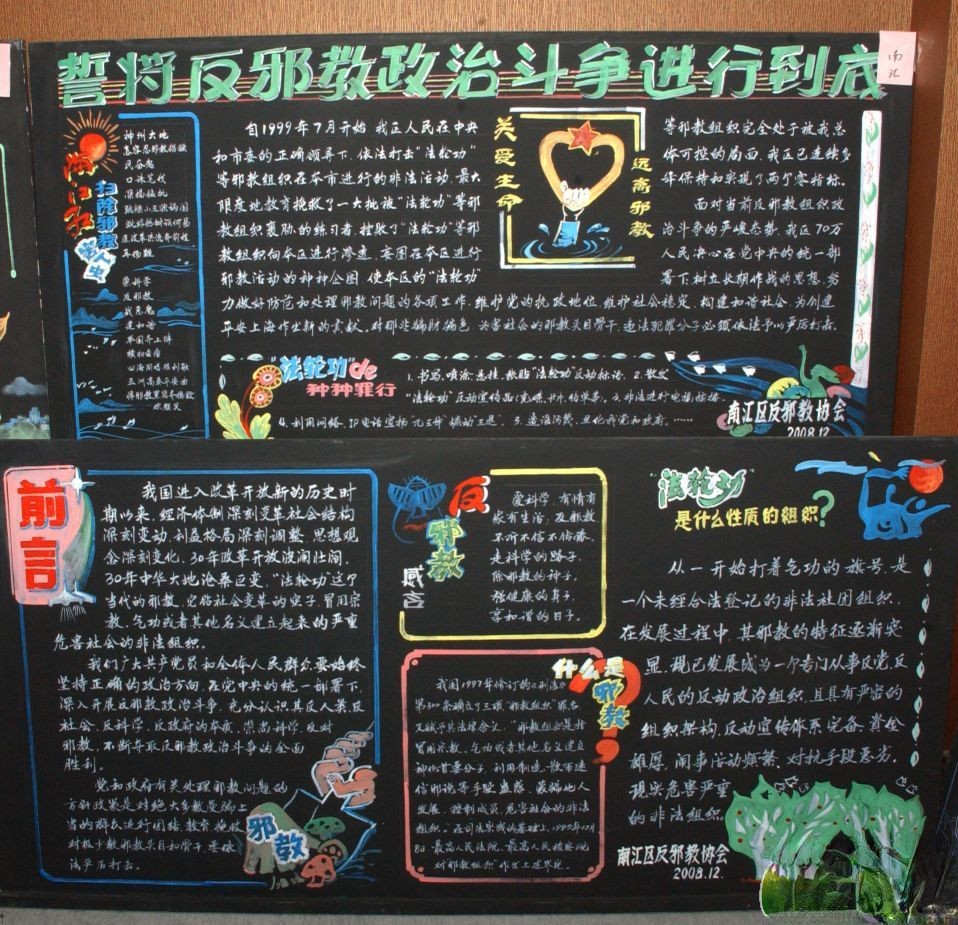 誓将反邪教政治斗争进行到底
南汇
满江红
扫除邪教害人虫
神州大地
民奋起
口诛笔伐
崇科学
反邪教
战恶魔
建和谐
举国齐上阵
自1999年7月开始,我区人民在中央
和市委的正确领导下,依法打击“法轮功”
等邪教组织在本市进行的非法活动,最大
限度地教育挽救了一大批被“法轮功”等邪
教组织裹胁的练习者,挫败了“法轮功”等邪
教组织向本区进行渗透、妄图在本区进行
邪教活动的种种企图,使本区的“法轮功”
关爱生命
远离邪教
等邪教组织完全处于被我总
体可控的局面,我区已连续多
年保持和实现了两个零指标。
面对当前反邪教组织政
治斗争的严峻态势,我区70万
人民决心在党中央的统一部
署下树立长期作战的思想,努
力做好防范和处理邪教问题的各项工作,维护党的执政地位,维护社会稳定,构建和谐社会,为创建
平安上海作出新的贡献,对那些骗财骗色、为害社会的邪教头目骨干、违法犯罪分子必须依法予以严厉打击。
“法轮功”de
种种罪行
1.书写、喷涂、悬挂、张贴“法轮功”反动标语。2.散发
“法轮功”反动宣传品(光碟、卡片、传单等。3.非法进行电视插播。
4.利用网络、IP电话宣扬“九评”煽动“三退”。5.造谣污蔑、丑化我党和政府。……
南汇区反邪教协会
2008.12
前言
我国进入改革开放新的历史时
期以来,经济体制深刻变革,社会结构
深刻变动,利益格局深刻调整,思想观
念深刻变化,30年改革开放波澜壮阔,
30年中华大地沧桑巨变。“法轮功”这个
当代的邪教,它钻社会变革的空子,冒用宗
教、气功或者其他名义建立起来的严重
危害社会的非法组织。
我们广大共产党员和全体人民群众,要始终
坚持正确的政治方向,在党中央的统一部署下,
深入开展反邪教政治斗争,充分认识其反人类、反
社会、反科学、反政府的本质,崇尚科学、反对
邪教,不断夺取反邪教政治斗争的全面
胜利。
党和政府有关处理邪教问题的
方针政策是对绝大多数受骗上
当的群众进行团结、教育、挽救
对极少数邪教头目和骨干,要依
法严厉打击。
邪教
反邪教感言
爱科学,有情有
家有生活,反邪教,
不听不信不传番。
走科学的路子,
除邪教的种子,
强健康的身子,
享和谐的日子。
什么是邪教?
我国1997年修订的《刑法》
第300条确立了三项“邪教组织”罪名,
冒用宗教、气功或者其他名义建立
神化首要分子,利用制造、散布迷
信邪说等手段蛊惑、蒙骗他人
发展、控制成员,危害社会的非法
组织。”在司法实践的基础上,1999年10月
8日,最高人民法院、最高人民检察院
对“邪教组织”作出上述界定。
“法轮功”
是什么性质的组织?
从一开始打着气功的旗号,是
一个未经合法登记的非法社团组织。
在发展过程中,其邪教的特征逐渐突
显,现已发展成为一个专门从事反党、反
人民的反动政治组织,且具有严密的
组织架构,反动宣传体系完备,资金
雄厚,闹事活动频繁,对抗手段恶劣,
现实危害严重
的非法组织。
南汇区反邪教协会
2008.12.